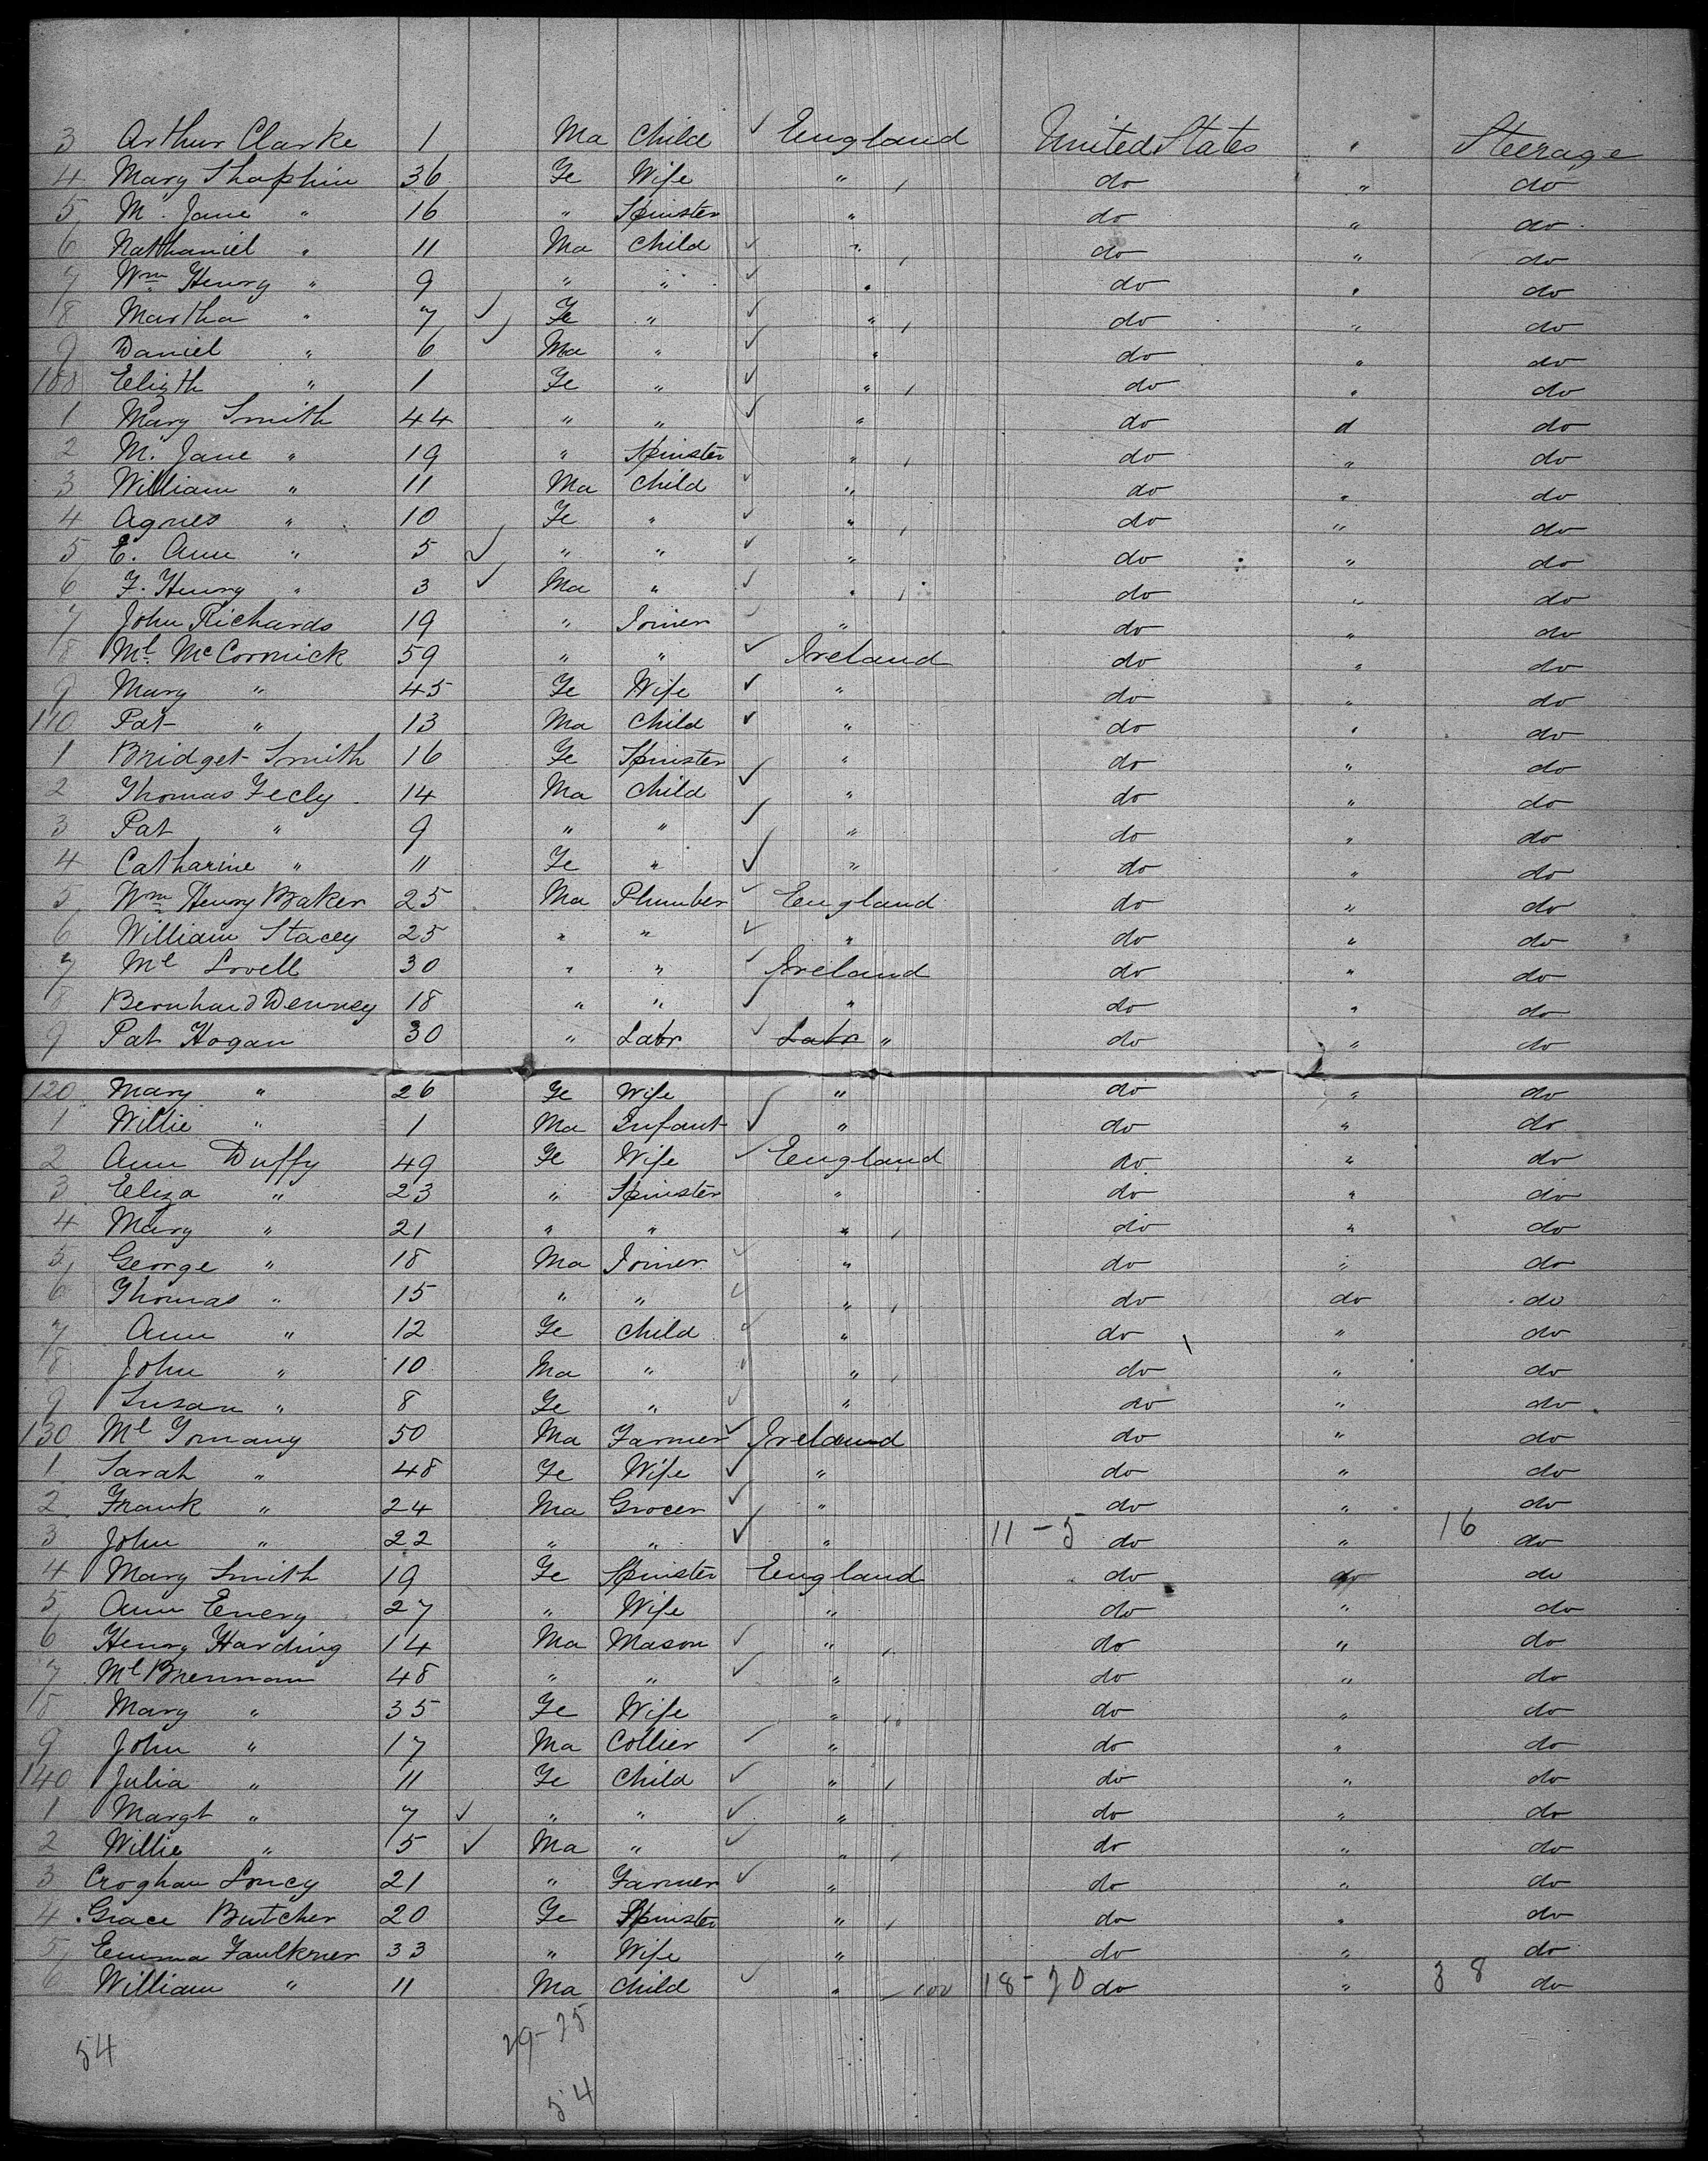 3 Arthur Clarke 1 Ma Child ✓ England United States " Steerage
4 Mary Shaphin 36 Fe Wife " do " do
5 M. Jane " 16 " Spinster " do " do
6 Nathaniel " 11 Ma Child ✓ " do " do
7 Wm Henry " 9 " " ✓ " do " do
8 Martha " 7 ✓ Fe " ✓ " do " do
9 Daniel " 6 ✓ Ma " ✓ " do " do
100 Elizth " 1 Fe " ✓ " do " do
1 Mary Smith 44 " " ✓ " do d do
2 M. Jane " 19 " Spinster " do " do
3 William " 11 Ma Child ✓ " do " do
4 Agnes " 10 Fe " ✓ " do " do
5 E. Ann " 5 ✓ " " ✓ " do " do
6 F. Henry " 3 ✓ Ma " ✓ " do " do
7 John Richards 19 " Joiner ✓ " do " do
8 Ml McCormick 59 " " ✓ Ireland do " do
9 Mary " 45 Fe Wife ✓ " do " do
110 Pat " 13 Ma Child ✓ " do " do
1 Bridget Smith 16 Fe Spinster " do " do
2 Thomas Feely 14 Ma Child ✓ " do " do
3 Pat " 9 " " ✓ " do " do
4 Catharine " 11 Fe " ✓ " do " do
5 Wm Henry Baker 25 Ma Plumber ✓ England do " do
6 William Stacey 25 " " ✓ " do " do
7 Ml Lovell 30 " " ✓ Ireland do " do
8 Bernhard Denney 18 " " ✓ " do " do
9 Pat Hogan 30 " Labr ✓ Labr " do " do
120 Mary " 26 Fe Wife " do " do
1 Willie " 1 Ma Infant ✓ " do " do
2 Ann Duffy 49 Fe Wife ✓ England do " do
3 Eliza " 23 " Spinster " do " do
4 Mary " 21 " " " do " do
5 George " 18 Ma Joiner ✓ " do " do
6 Thomas " 15 " " ✓ " do do do
7 Ann " 12 Fe Child ✓ " do " do
8 John " 10 Ma " ✓ " do " do
9 Susan " 8 Fe " ✓ " do " do
130 Ml 50 Ma Farmer ✓ Ireland do " do
1 Sarah " 48 Fe Wife ✓ " do " do
2 Frank " 24 Ma Grocer ✓ " do " do
3 John " 22 " " ✓ " 11-5 do " 16 do
4 Mary Smith 19 Fe Spinster England do do do
5 Ann Enery 27 " Wife " do " do
6 Henry Harding 14 Ma Mason ✓ " do " do
7 Ml Brennan 48 " " ✓ " do " do
8 Mary " 35 Fe Wife " do " do
9 John " 17 Ma Collier ✓ " do " do
140 Julia " 11 Fe Child ✓ " do " do
1 Margt " 7 ✓ " " ✓ " do " do
2 Willie " 5 ✓ Ma " ✓ " do " do
3 Croghan 21 " Farmer ✓ " do " do
4 Grace Butcher 20 Fe Spinster " do " do
5 Emma Faulkner 33 " Wife " do " do
6 William " 11 Ma Child ✓ " 100 18-20 do " 38 do
54 29-25
54